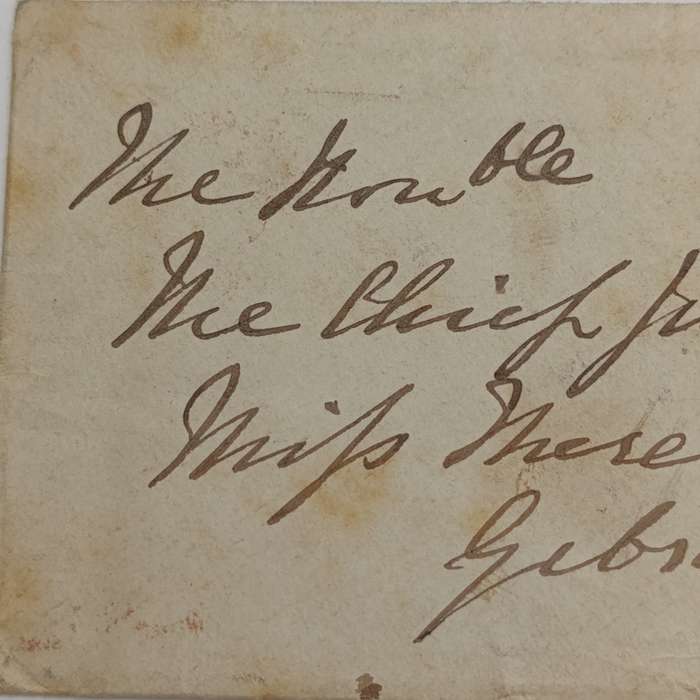 The Hon ble
The Chief Ju
Miss These
Gibr